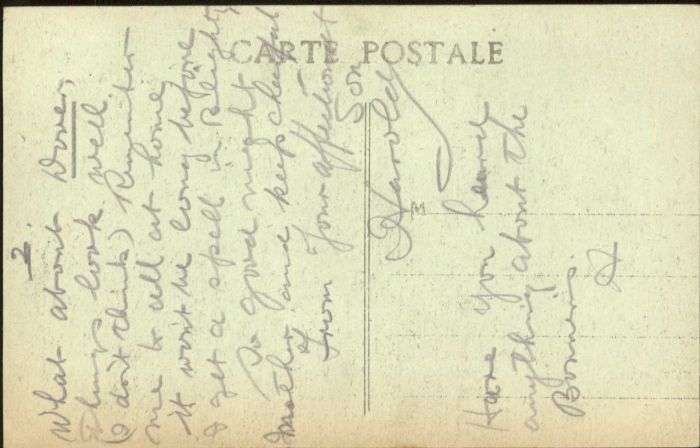 CARTE POSTALE
2.
What about Dover,
things look well
(I don't think) Remember
me to all at home
it won't be long before
I get a spell in Blighty
So good night
Mother and keep cheerful
From Your affectionate
Son
Harold
Have You heard
anything about the
H